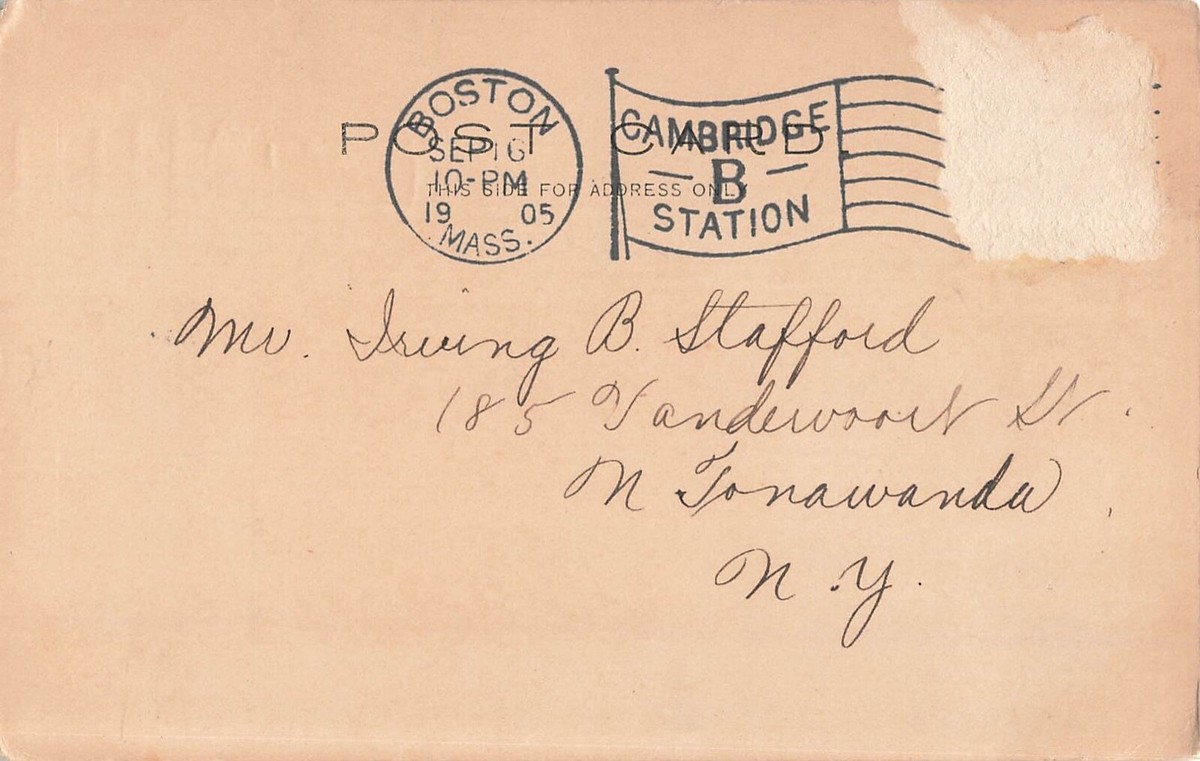 POST CARD
THIS SIDE FOR ADDRESS ONLY
BOSTON
SEP 16
10-PM
19 05
MASS.
CAMBRIDGE
B
STATION
Mr. Irving B. Stafford
185 Vandervoort St.
N Tonawanda,
N.Y.